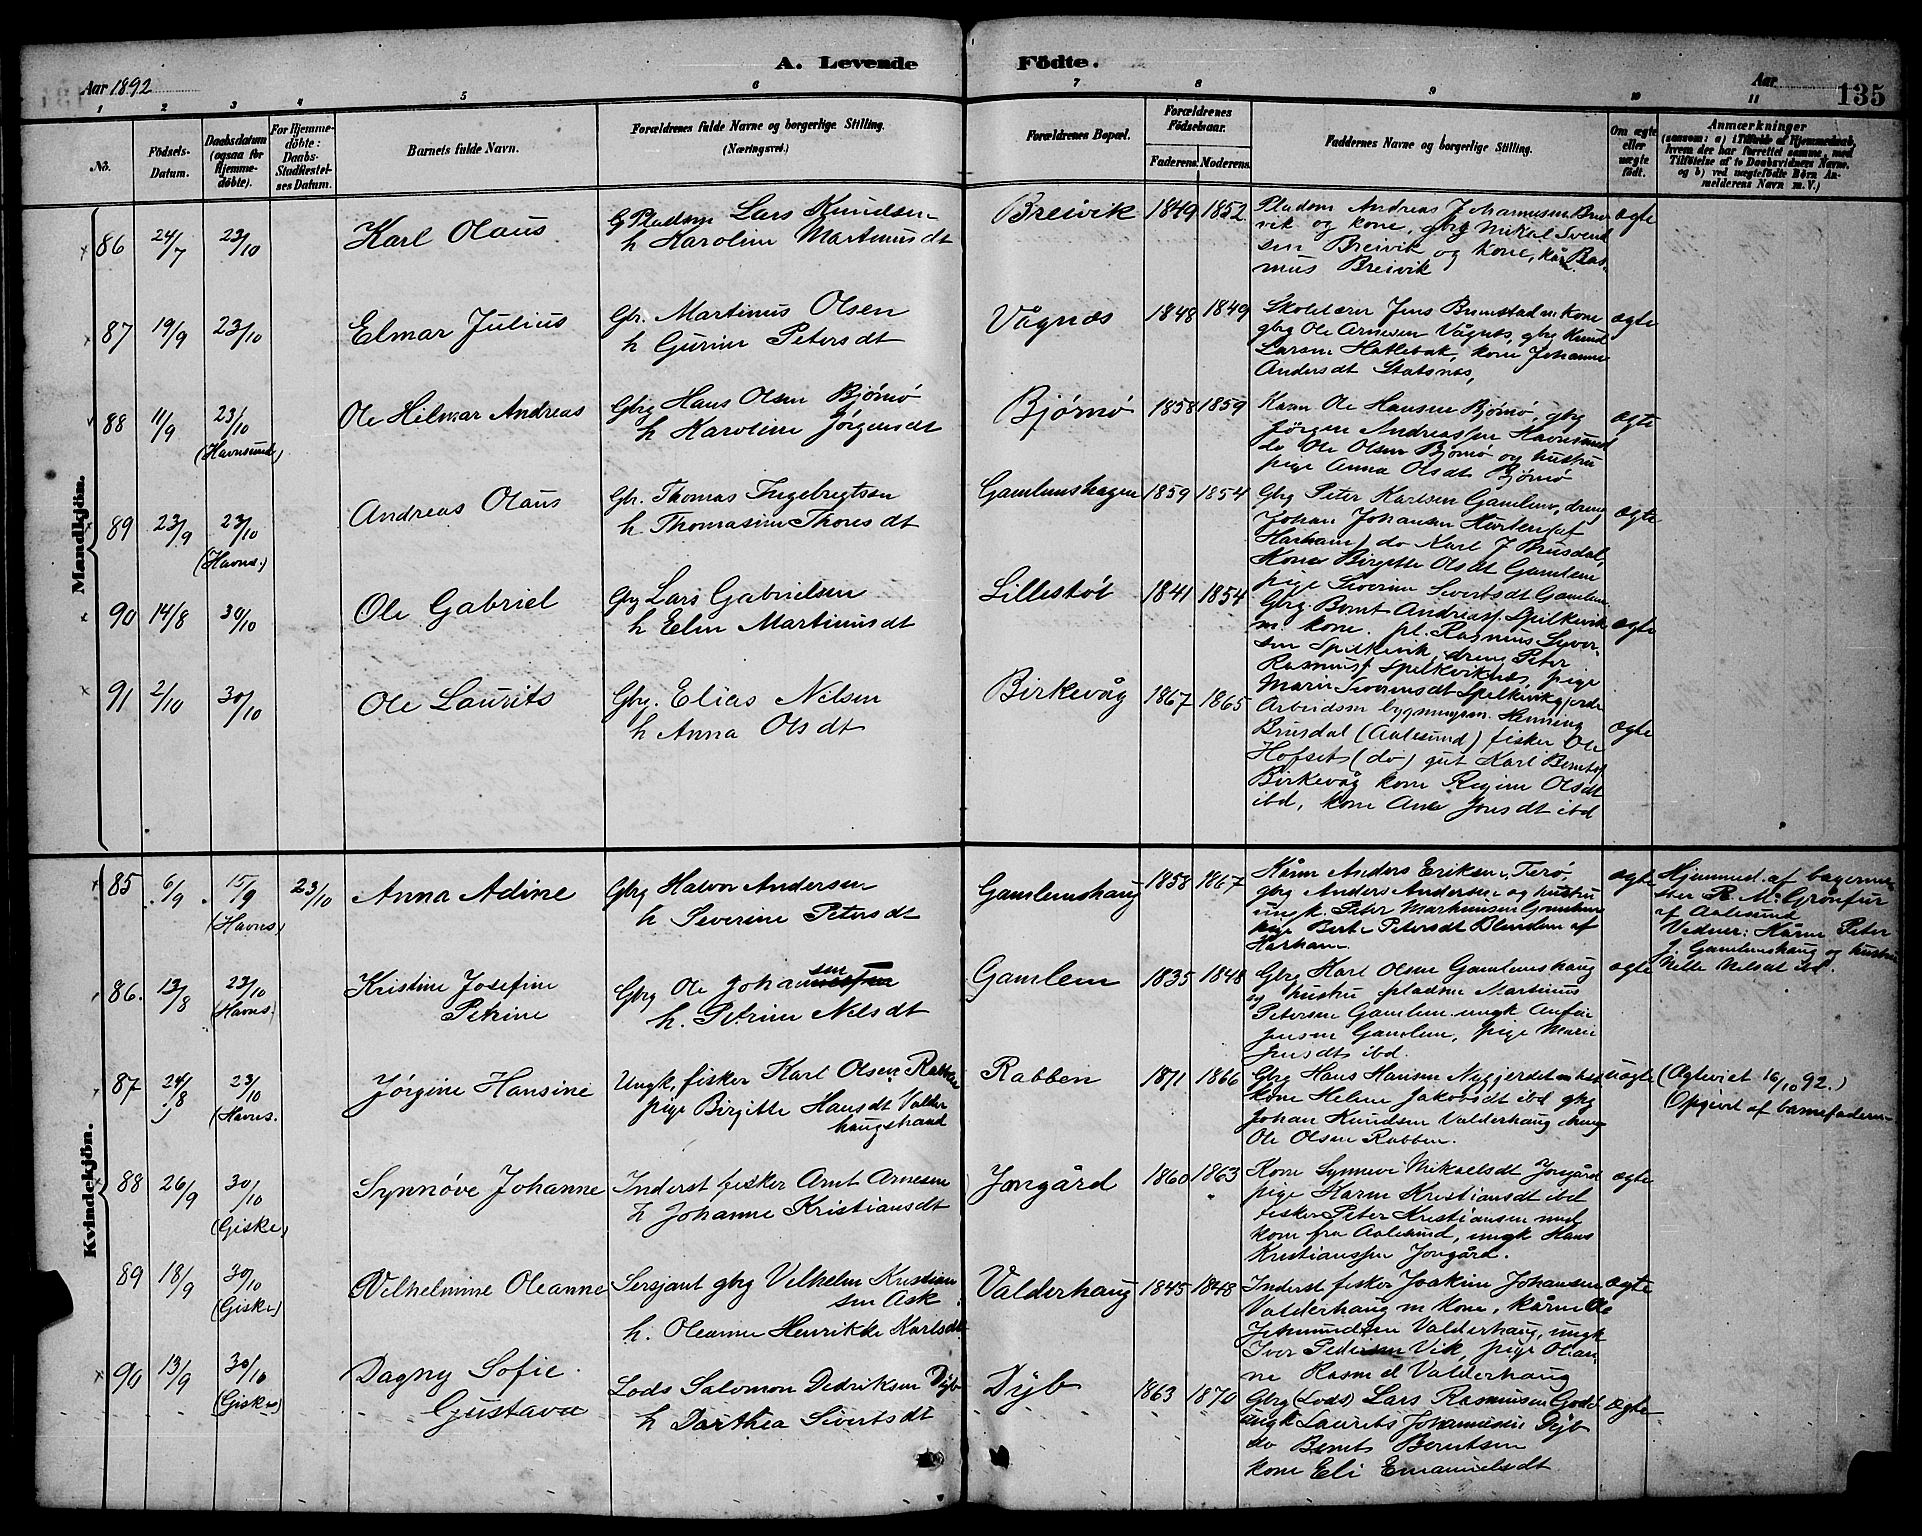 A. Levende Födte.
Aar 1892
Aar
135
1 2 3 4 5 6 7 8 9 10 11
No.
Födsels-Datum.
Daabsdatum (ogsaa for Hjemmedöbte).
For Hjemmedöbte: Daabs-Stadfæstelses Datum.
Barnets fulde Navn.
Forældrenes fulde Navne og borgerlige Stilling.
(Næringsvei.)
Forældrenes Bopæl.
Forældrenes Födselsaar.
Faderens. Moderens.
Faddernes Navne og borgerlige Stilling.
Om ægte eller uægte födt.
Anmærkninger
(saasom: a) i Tilfælde af Hjemmedaab, hvem der har forrettet samme, med Tilföielse af to Daabsvidners Navne, og b) ved uægtefödte Börn Anmelderens Navn m. V.)
Mandkjön.
86 24/7 23/10 Karl Olaus
G Pladsm Lars Knudsen
h Karoline Martinusdt
Breivik 1849 1852
Pladsm Andreas Johannesen Brei-
vik og kone, gbrg Mikal Svend
sen Breivik og kone, kår Ras-
mus Breivik
ægte
87 19/9 23/10 Elmar Julius
Gbr. Martinus Olsen
h Gurine Petersdt
Vågnæs 1848 1849
Skolelærer Jens Brunstad m kone
gbrg Ole Arnesen Vågnæs, gbrg Knud
Larsen Hatlebak, kone Johanne
Andersdt Statsnæs,
ægte
88 11/9 23/10 (Havnsund) Ole Hilmar Andreas
Gbrg Hans Olsen Bjørnø
h Karoline Jørgensdt
Bjørnø 1858 1859
Kårm Ole Hansen Bjørnø, gbrg
Jørgen Andreassen Havnsund
do Ole Olsen Bjørnø og hustru
pige Anna Olsdt Bjørnø
ægte
89 23/9 23/10 (Havns.) Andreas Olaus
Gbr. Thomas Ingebregtsen
h Thomasine Thoresdt
Gamlemshagen 1859 1854
Gbrg Peter Karlsen Gamlem, dreng
Johan Johansen Hurlen (af
Harham) do Karl J Brusdal,
Kone Birgitte Olsdt Gamlem
pige Severine Sivertsdt Gamlem
ægte
90 14/8 30/10 Ole Gabriel
Gbrg Lars Gabrielsen
h Elen Martinusdt
Lillestøl 1841 1854
Gbrg. Bernt Andreass. Spilkevik
m. kone. pl. Rasmus Syver-
sen Spilkevik, dreng Peter
Rasmuss Spilkeviknes, pige
Marie Severinsdt Spilkevikgjerde
ægte
91 2/10 30/10 Ole Laurits
Gbrg. Elias Nilsen
h Anna Olsdt
Birkevåg 1867 1865
Arbeidsm bygningsm. Henning
Brusdal (Aalesund) fisker Ole
Hofset (do) gut Karl Berntsf
Birkevåg kone Regine Olsdt
ibd, kone Ane Jonsdt ibd
ægte
Kvindekjön.
85 6/9 15/9 (Havns) 23/10 Anna Adine
Gbrg Halvor Andersen
h Severine Petersdt
Gamlemshaug 1858 1867
Kårm Anders Eriksen Terø,
gbrg Anders Andersen og hustru
ungk. Peter Martinusen Gamlem
pige Berte Petersdt Blindem af
Harham.
ægte
Hjemmed. af bagerme-
ster R. M. Grønfur
af Aalesund
Vidner: Kårm Peter
J. Gamlemshaug og hustru
Nelle Nilsdt ibd.
86. 13/8 23/10 (Havns) Kristine Josefine
Petrine
Gbrg Ole Johansen
h. Petrine Nelsdt
Gamlem 1835 1848
Gbrg Karl Olsen Gamlemshaug
og hustru pladsm Martinus
Petersen Gamlem ungk Anfin
Jensen Gamlem, pige Marie
Jensdt ibd.
ægte
87 24/8 23/10 (Havns. Jørgine Hansine
Ungk, fisker Karl Olsen Rabben
pige Birgitte Hansdt Valder
haugstrand
Rabben 1871 1866
Gbrg Hans Hansen Nygjerdet m hst
kone Helene Jakobsdt ibd gbrg
Johan Knudsen Valderhaug dreng
Ole Olsen Rabben.
uægte
(Agteviet 16/10 92.)
(Opgivet af barnefaderen
88 26/9 30/10 (Giske) Synnøve Johanne
Inderst fisker Arnt Arnesen
h Johanne Kristiansdt
Jongård 1860 1863
Kone Synnevi Mikaelsdt Jongård
pige Karen Kristiansdt ibd
fisker Peter Kristiansen med
kone fra Aalesund, ungk Hans
Kristianssen Jongård.
ægte
89 18/9 30/10 (Giske) Vilhelmine Oleanne
Sersjant gbrg Vilhelm Kristian
sen Ask
h. Oleanne Henrikke Karlsdt
Valderhaug 1845 1848
Inderst fisker Joakim Johansen
Valderhaug m kone, kårm Ole
Jetmundsen Valderhaug, ungk
Iver Pedersen Vik, pige Olean-
ne Rasm d Valderhaug
ægte
90 13/9 30/10 (Giske) Dagny Sofie
Gustava
Lods Salomon Dedriksen Dyb
h Dorthea Sivertsdt
Dyb 1863 1870
Gbrg (Lods) Lars Rasmussen Godø
ungk Laurits Johannesen Dyb
do Bernt Berntsen
kone Eli Emanuelsdt
ægte